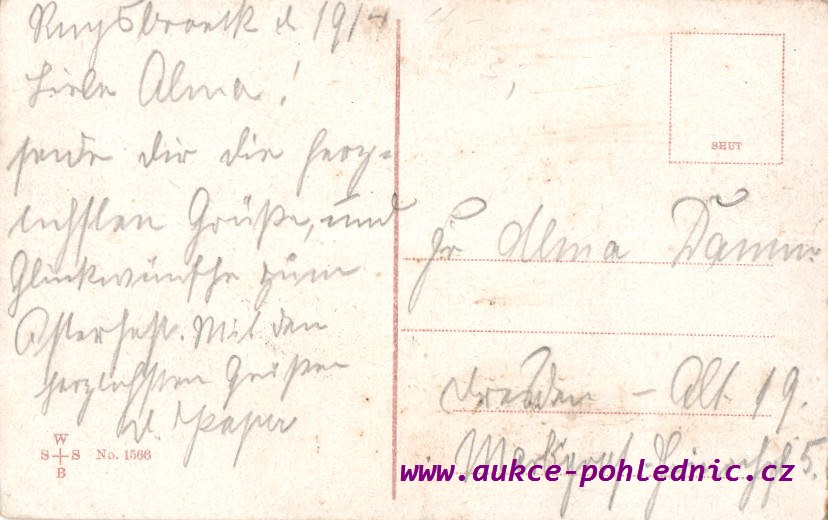 Ruysbroeck d 191
Liebe Alma!
sende dir die herz=
lichsten Grüße, und
Glückwünsche zum
Osterfest. Mit den
herzlichsten Grüßen
W
S S
B
No. 1566
SHUT
Alma
Dresden - Alt. 19.
5.
www.aukce-pohlednic.cz